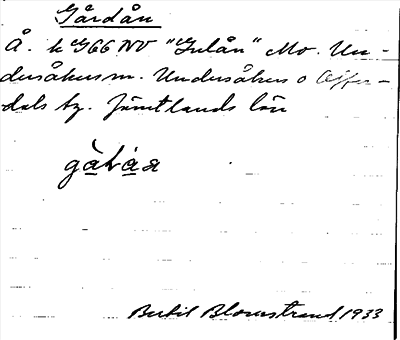 Gårdån
Å. k G66 NV "Gulån" Mo. Un-
dersåkers m. Undersåkers o Offer-
dals tg. Jämtlands län
Bertil Blomstrand 1933